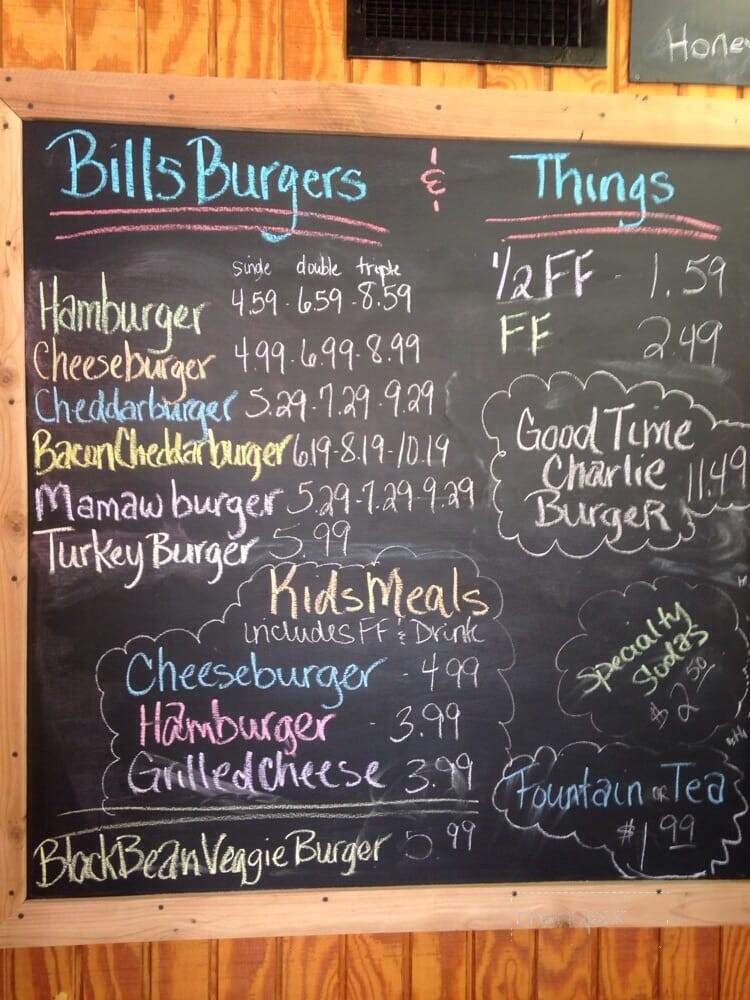 Hone
Bills Burgers & Things
single double triple
Hamburger 4.59 - 6.59 - 8.59
Cheeseburger 4.99 - 6.99 - 8.99
Cheddarburger 5.29 - 7.29 - 9.29
Bacon Cheddarburger 6.19 - 8.19 - 10.19
Mamaw burger 5.29 - 7.29 - 9.29
Turkey Burger 5.99
Kids Meals
includes FF & Drink
Cheeseburger - 4.99
Hamburger - 3.99
Grilled Cheese 3.99
Black Bean Veggie Burger 5.99
1/2 FF - 1.59
FF 2.49
Good Time
Charlie 11.49
Burger
Specialty
Sodas
$2.50
Fountain or Tea
$1.99